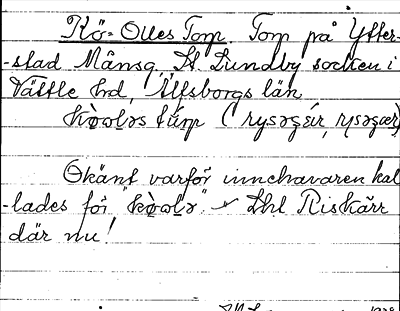 Kö-Olles Torp. Torp på Ytter-
-stad Månsg, St Lundby socken i
Vättle hd, Älfsborgs län
kò̤o̤lə̤s túrp (rysəgɛ́ír, rysəgær)
Okänt varför innehavaren kal
-lades för "kò̤o̤lə". Lhl Riskärr
där nu!